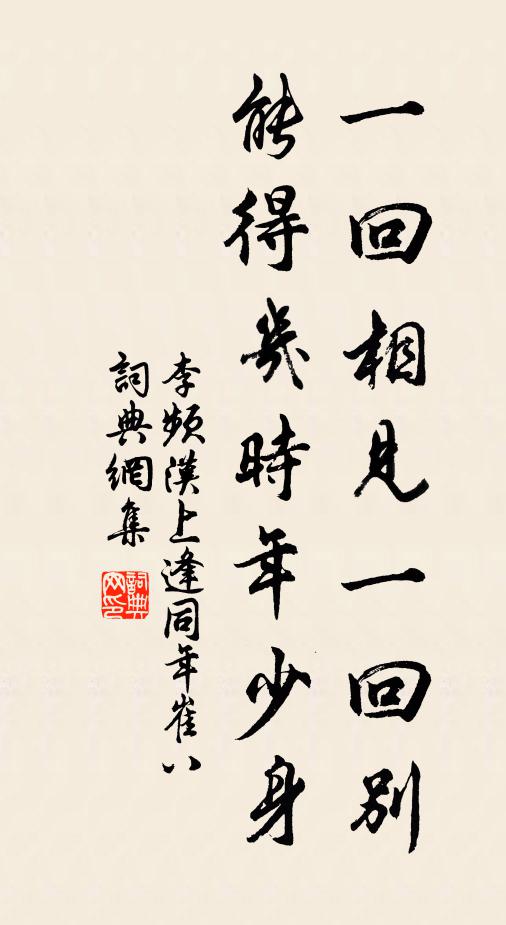 一回相見一回別
能得幾時年少身
李頻漢上逢同年崔八
詞典網集
詞典網印